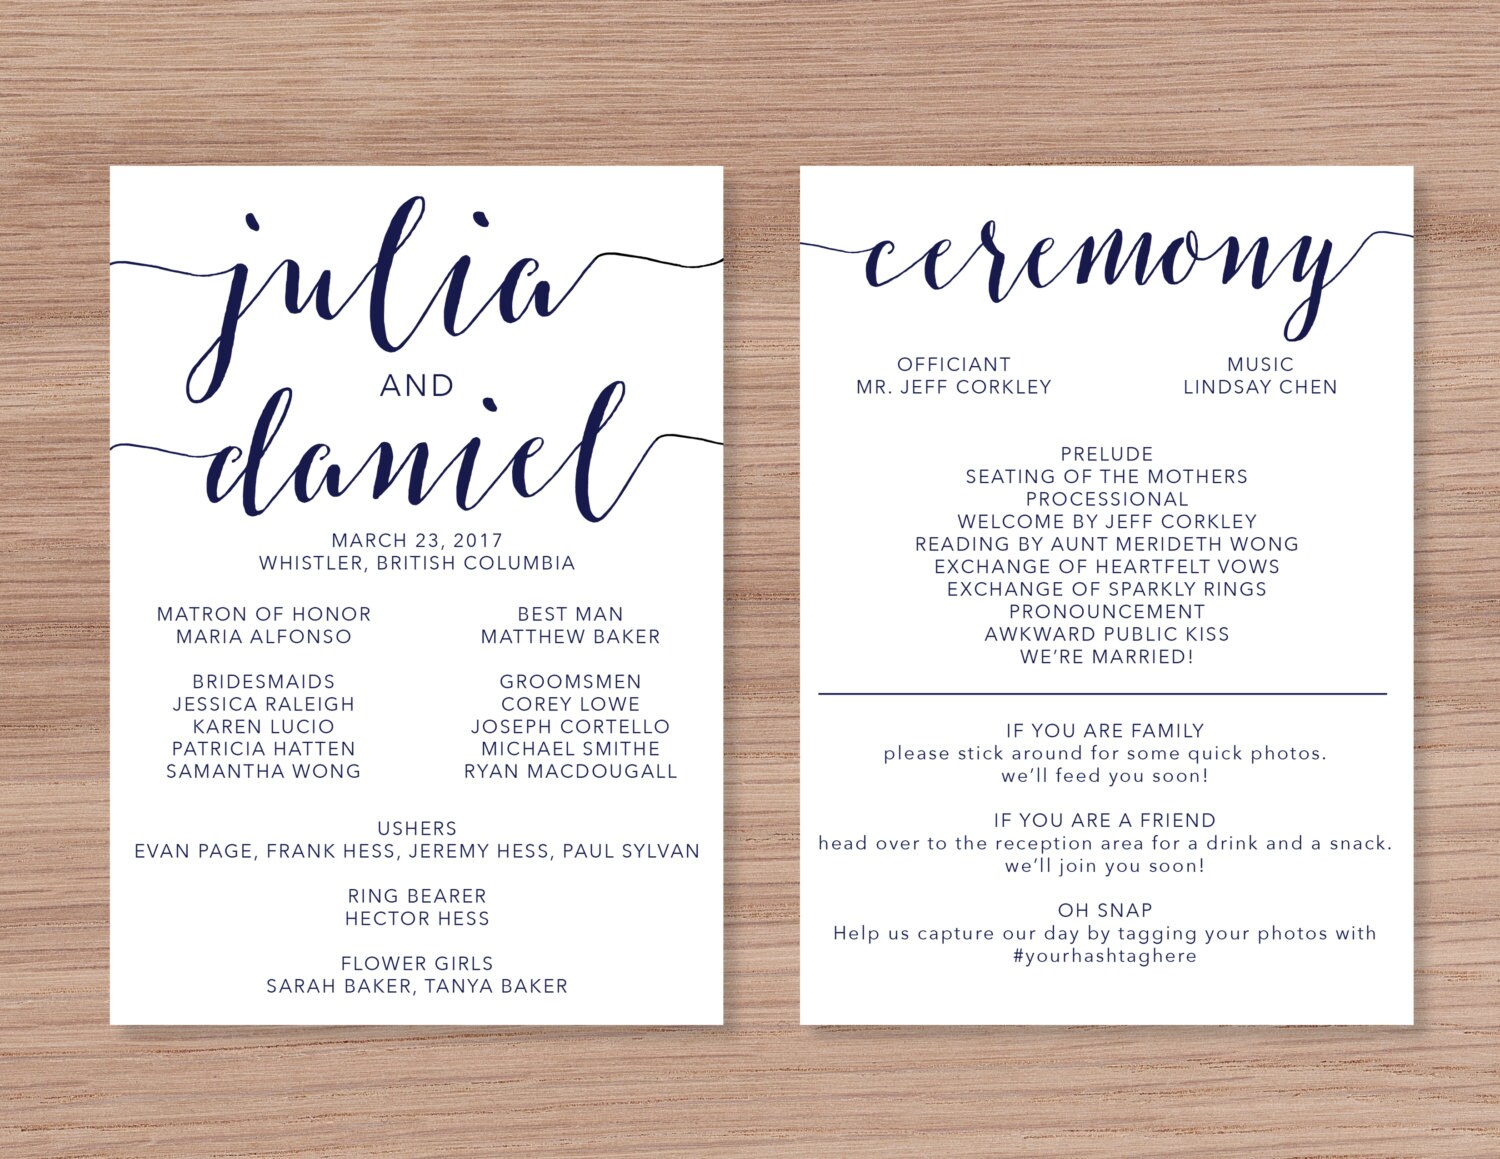 julia
AND
daniel
MARCH 23, 2017
WHISTLER, BRITISH COLUMBIA
MATRON OF HONOR
MARIA ALFONSO
BEST MAN
MATTHEW BAKER
BRIDESMAIDS
JESSICA RALEIGH
KAREN LUCIO
PATRICIA HATTEN
SAMANTHA WONG
GROOMSMEN
COREY LOWE
JOSEPH CORTELLO
MICHAEL SMITHE
RYAN MACDOUGALL
USHERS
EVAN PAGE, FRANK HESS, JEREMY HESS, PAUL SYLVAN
RING BEARER
HECTOR HESS
FLOWER GIRLS
SARAH BAKER, TANYA BAKER
ceremony
OFFICIANT
MR. JEFF CORKLEY
MUSIC
LINDSAY CHEN
PRELUDE
SEATING OF THE MOTHERS
PROCESSIONAL
WELCOME BY JEFF CORKLEY
READING BY AUNT MERIDETH WONG
EXCHANGE OF HEARTFELT VOWS
EXCHANGE OF SPARKLY RINGS
PRONOUNCEMENT
AWKWARD PUBLIC KISS
WE'RE MARRIED!
IF YOU ARE FAMILY
please stick around for some quick photos.
we'll feed you soon!
IF YOU ARE A FRIEND
head over to the reception area for a drink and a snack.
we'll join you soon!
OH SNAP
Help us capture our day by tagging your photos with
#yourhashtaghere